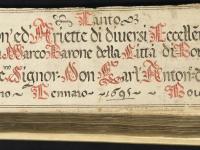 Canto
ed Ariette di diversi Eccellen
Marco Barone della Città di Bo
Signor Don Carl Anton d
no Gennaro 1695